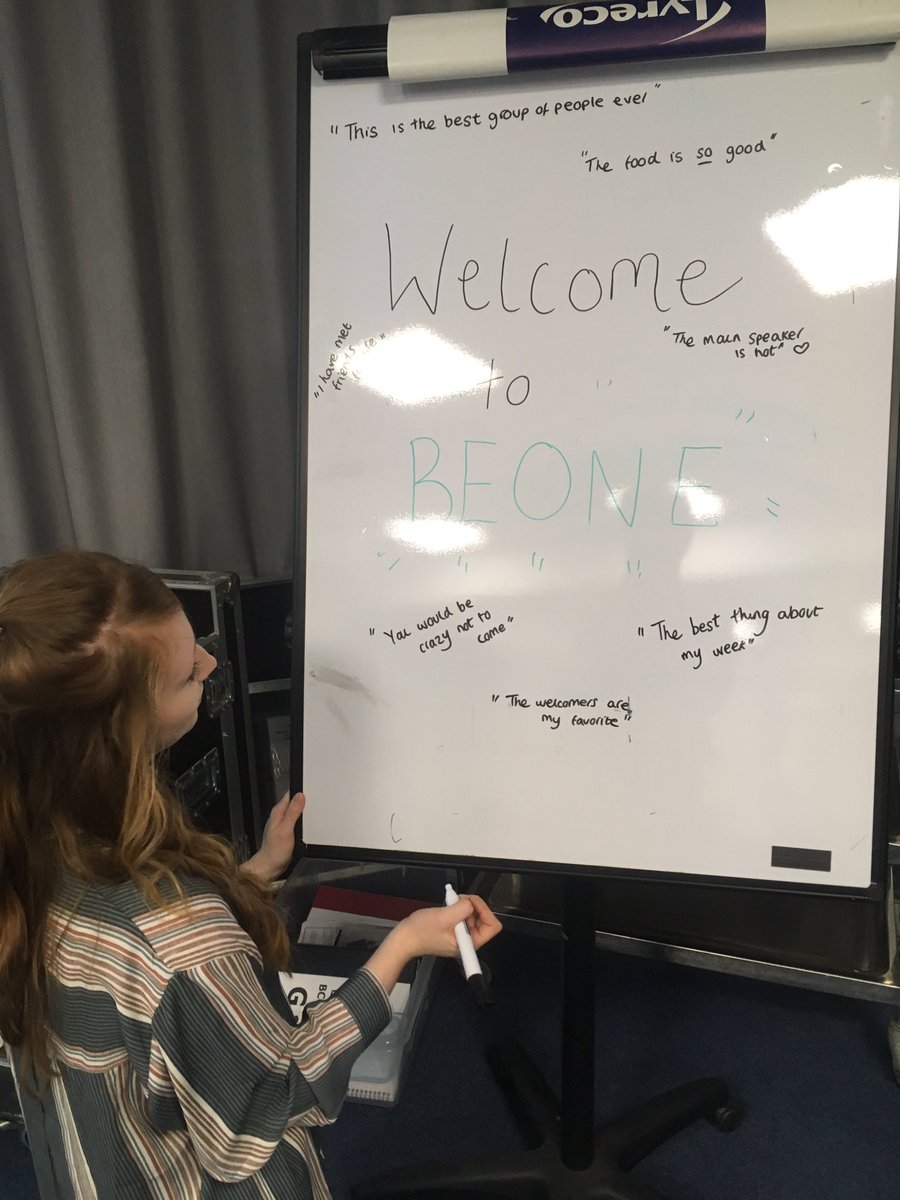 Lyreco
"This is the best group of people ever"
"The food is so good"
Welcome
"The main speaker
is hot" ♡
"I have met
to
"BEONE"
"You would be
crazy not to
come"
"The best thing about
my week"
"The welcomers are
my favorite"